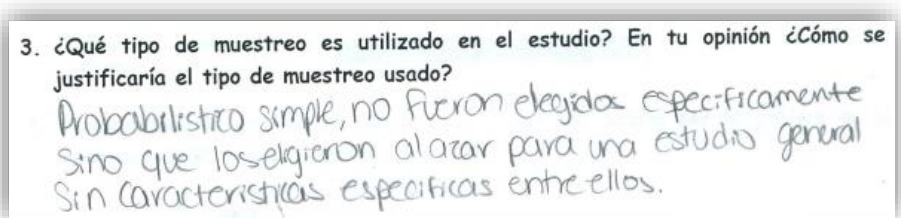 3. ¿Qué tipo de muestreo es utilizado en el estudio? En tu opinión ¿Cómo se
justificaría el tipo de muestreo usado?
Probabilistico simple, no fueron elegidos especificamente
Sino que los eligieron al azar para una estudio general
Sin caracteristicas especificas entre ellos.